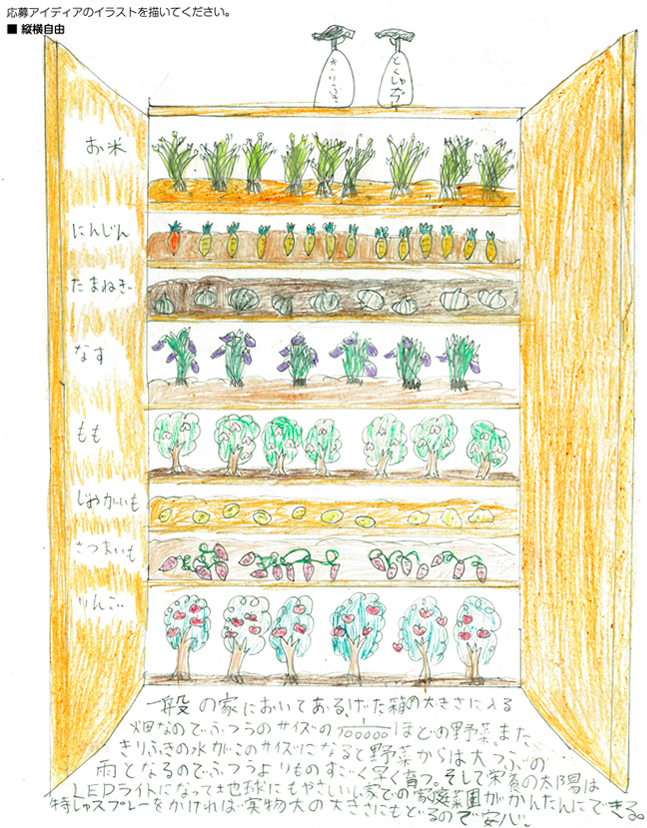 応募アイディアのイラストを描いてください。
■ 縦横自由
きりふき
とくしゅ
お米
にんじん
たまねぎ
なす
もも
じゃがいも
さつまいも
りんご
一般の家においてある、げた箱の大きさに入る
畑なのでふつうのサイズの1/100000ほどの野菜。また
きりふきの水がこのサイズになると野菜からは大つぶの
雨となるのでふつうよりものすごく早く育つ。そして栄養の太陽は
LEDライトになって地球にもやさしいし家での家庭菜園がかんたんにできる。
特しゅスプレーをかければ実物大の大きさにもどるので安心。